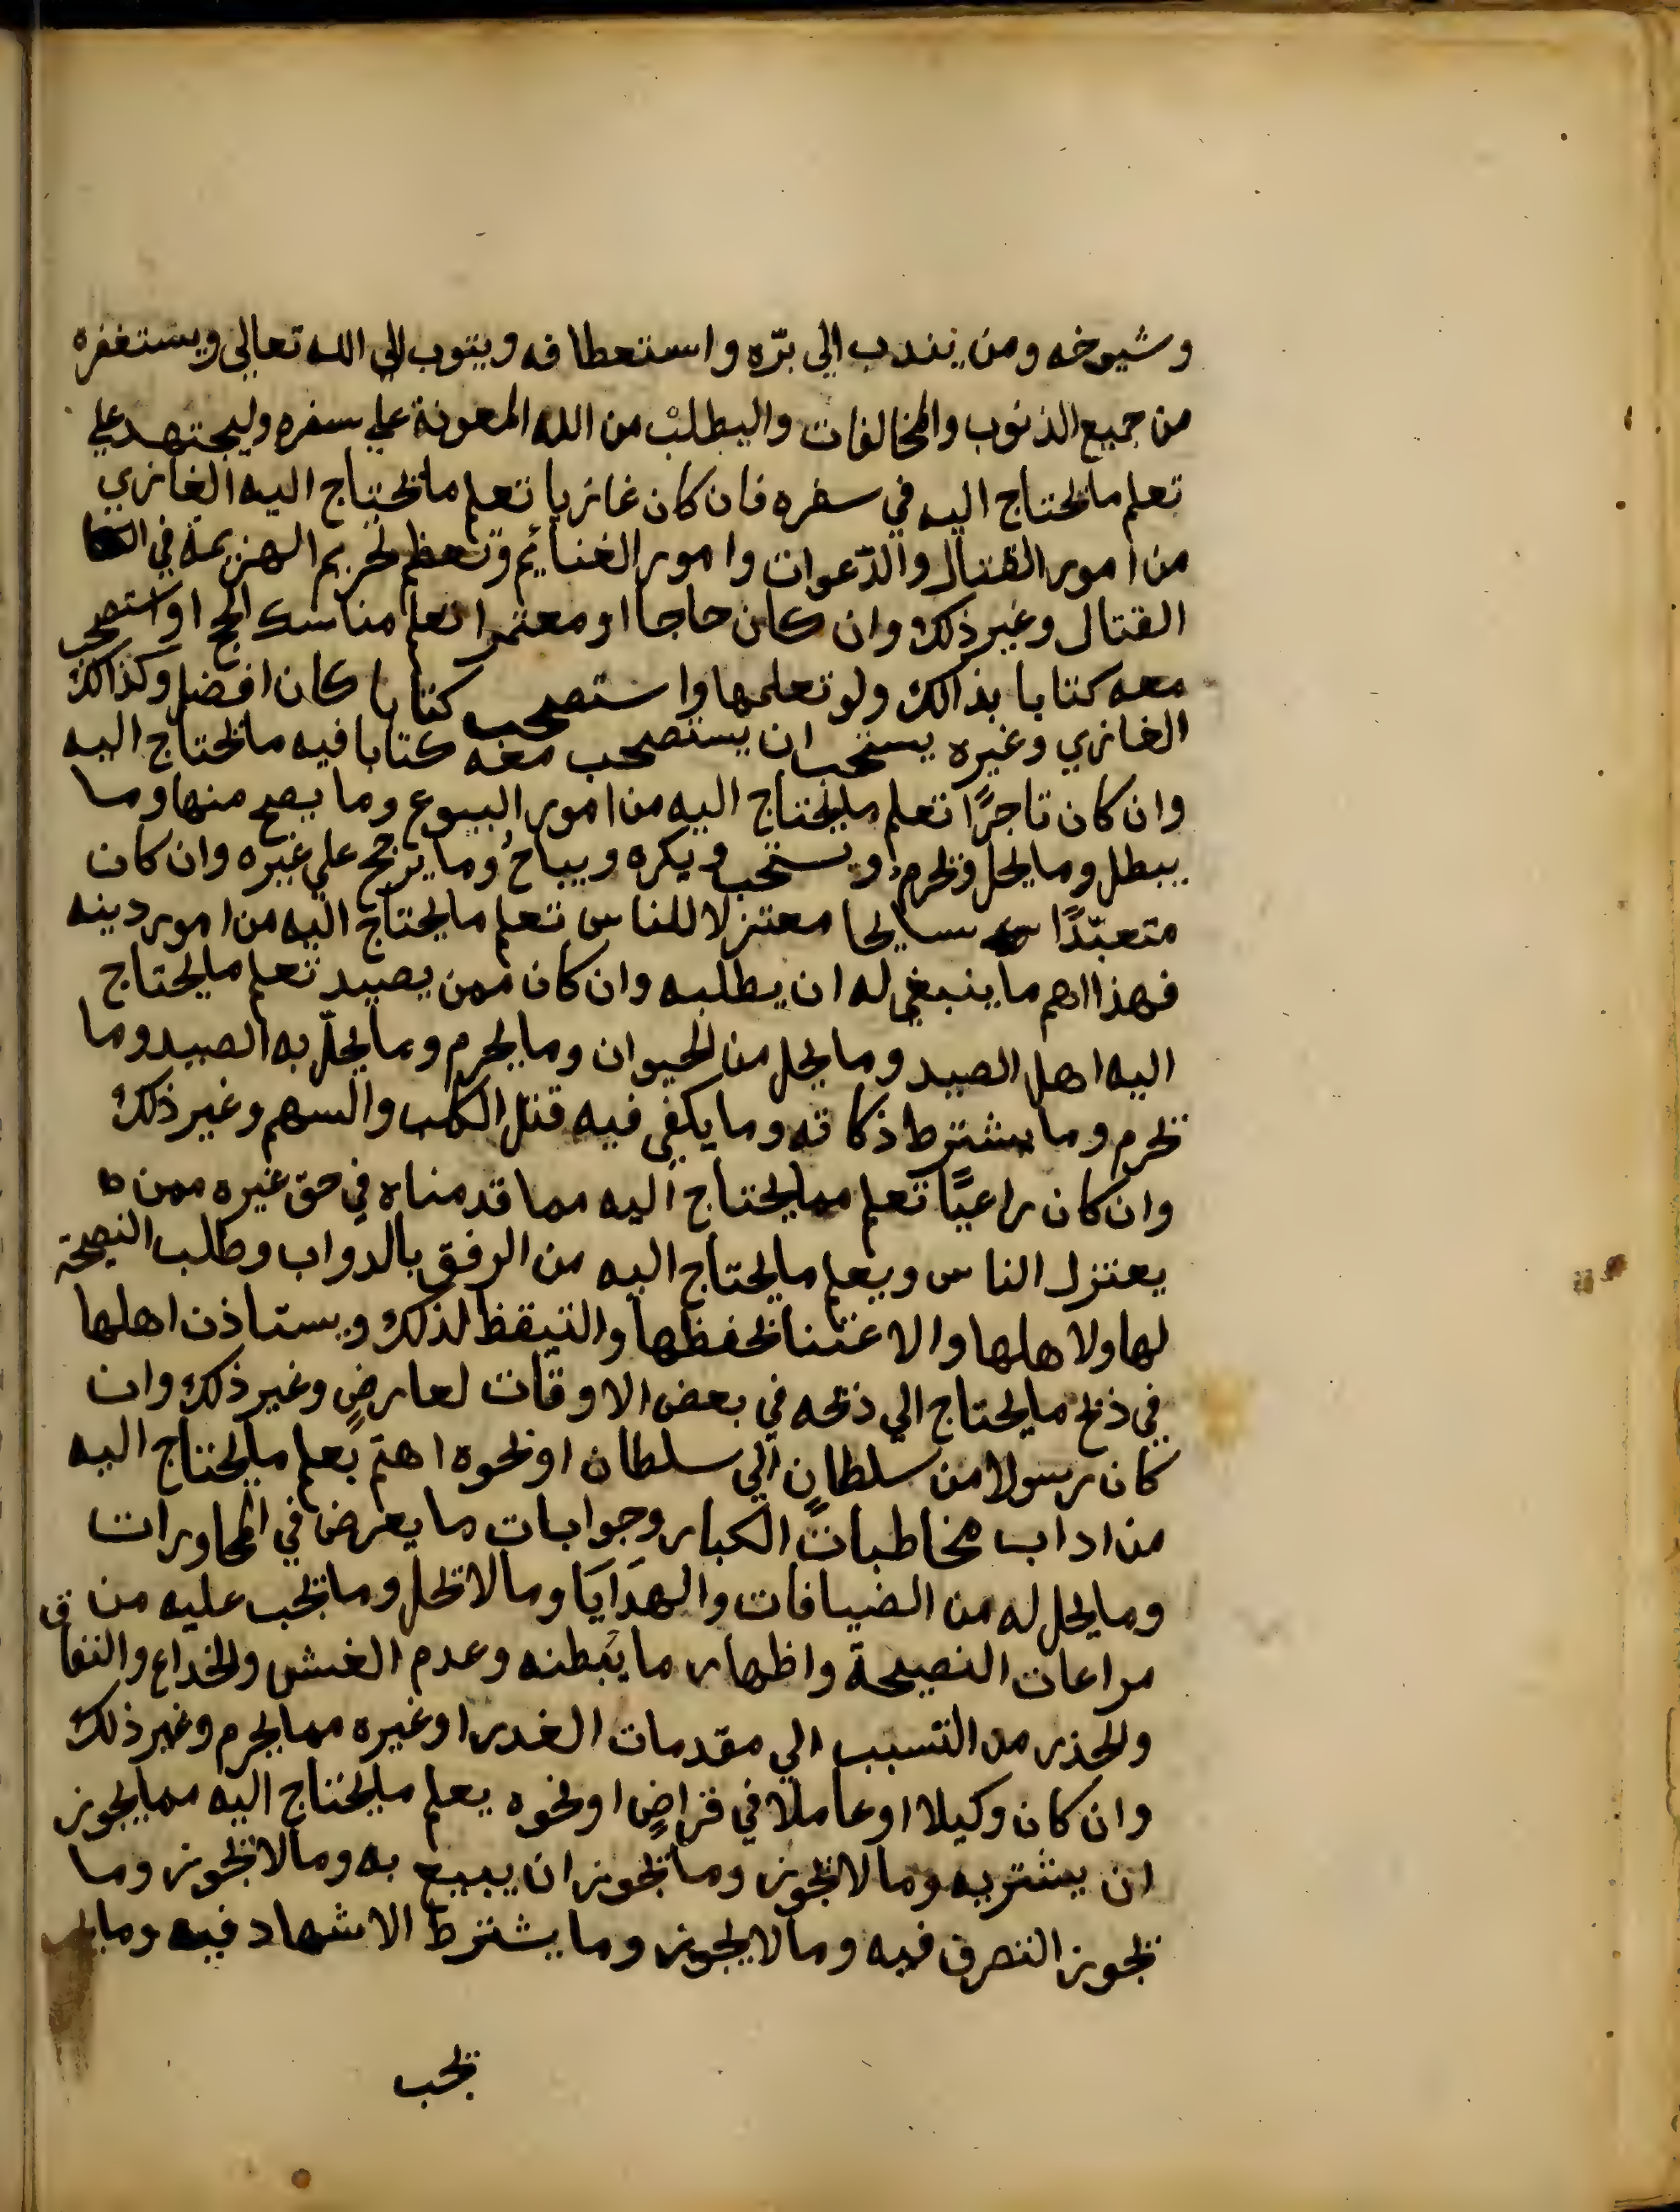 وشيوخه ومن يندب الي برّه واستعطافه ويتوب الي الله تعالي ويستغفره
من جميع الذنوب والمخالفات واليطلب من الله المعونة علي سفره وليجتهد علي
تعلم ما يحتاج اليه في سفره فان كان غازيا تعلم ما يحتاج اليه الغازي
من امور القتال والدّعوات وامور الغنايم وتعظم تحريم الهزيمة في
القتال وغير ذلك وان كان حاجا او معتمرا تعلم مناسك الحج او استصحب
معه كتابا بذالك ولو تعلمها واستصحب كتابا كان افضل وكذالك
الغازي وغيره يستحب ان يستصحب معه كتابا فيه ما يحتاج اليه
وان كان تاجرًا تعلم ما يحتاج اليه من امور البيوع وما يصح منها وما
يبطل وما يحل ويحرم ويستحب ويكره ويباحُ وما يرجح علي غيره وان كان
متعبّدًا سايحا معتزلا للناس تعلم ما يحتاج اليه من امور دينه
فهذا اهم ما ينبغي له ان يطلبه وان كان ممن يصيد تعلم ما يحتاج
اليه اهل الصيد وما يحل من الحيوان وما يحرم وما يحلّ به الصيد وما
يحرم وما يشترط ذكاته وما يكفي فيه قتل الكلب والسهم وغير ذلك
وان كان راعيًا تعلم مما يحتاج اليه مما قدمناه في حق غيره ممن
يعتزل الناس ويعلم ما يحتاج اليه من الرفق بالدواب وطلب النصيحة
لها ولاهلها والاعتنا بحفظها والتيقظ لذلك ويستاذن اهلها
في ذبح ما يحتاج الي ذبحه في بعض الاوقات لعارضٍ وغير ذلك وان
كان رسولا من سلطانٍ الي سلطان او نحوه اهتم بعلم ما يحتاج اليه
من اداب مخاطبات الكبار وجوابات ما يعرض في المحاورات
وما يحل له من الضيافات والهدَايَا وما لا يحل وما يجب عليه من
مراعات النصيحة واظهار ما يبطنه وعدم الغش والخداع والنفاق
والحذر من التسبب الي مقدمات الغدر او غيره مما يحرم وغير ذلك
وان كان وكيلا او عاملا في قراضٍ او نحوه يعلم ما يحتاج اليه مما يجوز
ان يشتريه وما لا يجوز وما يجوز ان يبيع به وما لا يجوز وما
يجوز التصرف فيه وما لا يجوز وما يشترط الاشهاد فيه وما
يجب